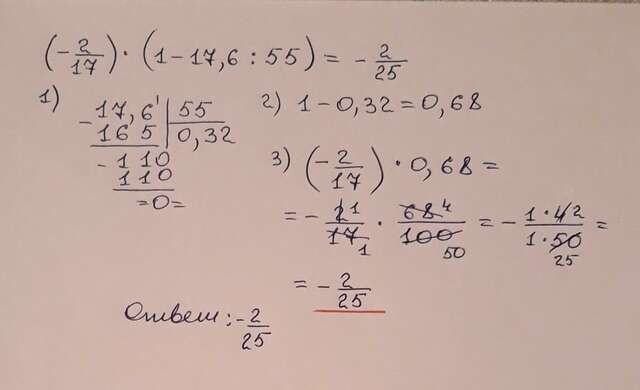 (-2/17) · (1-17,6 : 55) = -2/25
1) -17,6' | 55
165 | 0,32
-110
110
=0=
2) 1-0,32=0,68
3) (-2/17) · 0,68 =
= -21/171 · 684/10050 = -1·42/1·5025 =
= -2/25
Ответ: -2/25